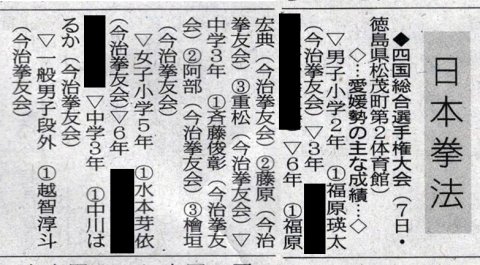 日本拳法
◆四国総合選手権大会（7日・
徳島県松茂町第2体育館）
◇…愛媛勢の主な成績…◇
▽男子小学2年　①福原瑛太
（今治拳友会）▽3年
▽6年　①福原
宏典（今治拳友会）②藤原（今治
拳友会）③重松（今治拳友会）▽
中学3年　①斉藤俊彰（今治拳友
会）②阿部（今治拳友会）③檜垣
（今治拳友会）
▽女子小学5年　①水本芽依
（今治拳友会）▽6年
▽中学3年　①中川は
るか（今治拳友会）
▽一般男子段外　①越智淳斗
（今治拳友会）